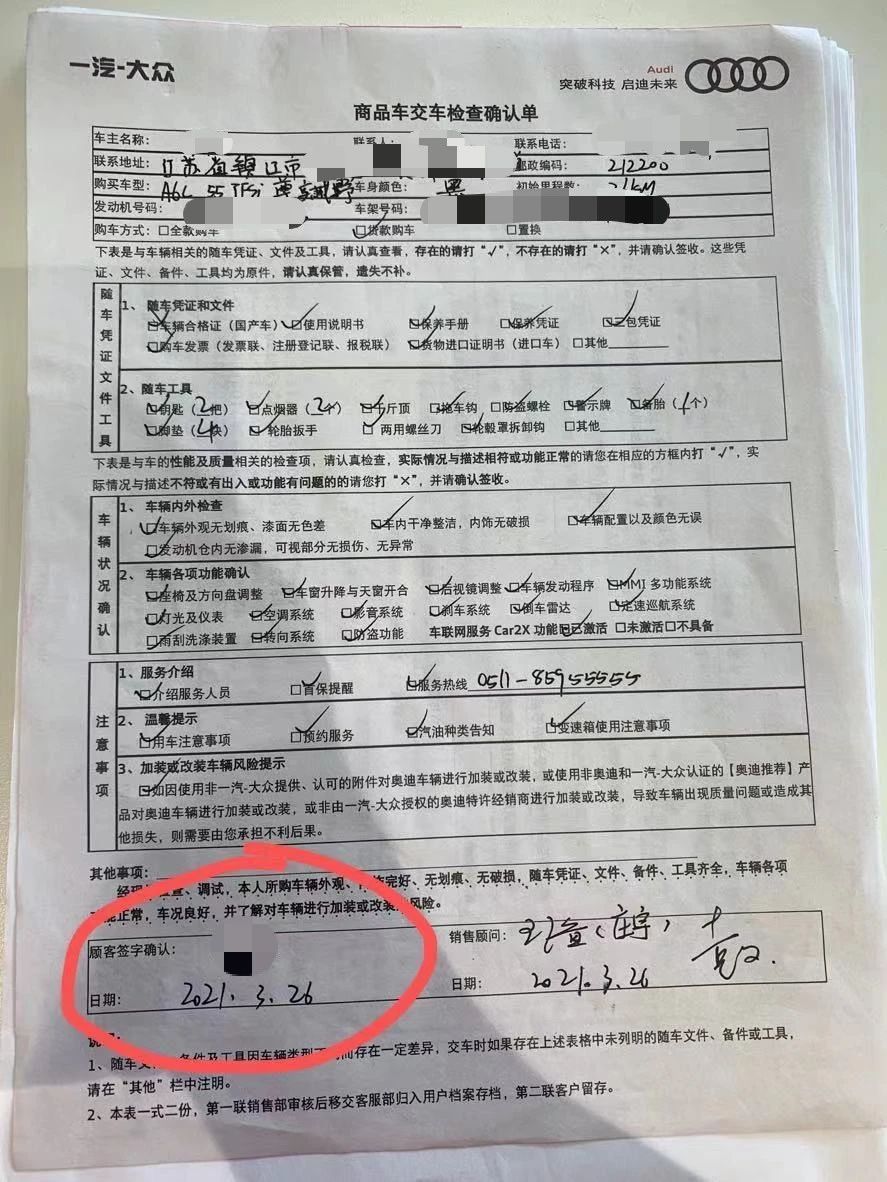 一汽-大众
Audi
突破科技 启迪未来
商品车交车检查确认单
车主名称: 联系人: 联系电话:
联系地址: 江苏省镇江市 邮政编码: 212200
购买车型: A6L 55 TFSi 车身颜色: 黑 初始里程数: KM
发动机号码: 车架号码:
购车方式: □全款购车 ☑贷款购车 □置换
下表是与车辆相关的随车凭证、文件及工具，请认真查看，存在的请打“√”，不存在的请打“×”，并请确认签收。这些凭
证、文件、备件、工具均为原件，请认真保管，遗失不补。
随车凭证文件工具
1、 随车凭证和文件
☑车辆合格证（国产车） ☑使用说明书 ☑保养手册 ☑保养凭证 ☑三包凭证
☑购车发票（发票联、注册登记联、报税联） ☑货物进口证明书（进口车） □其他
2、随车工具
☑钥匙（2把） ☑点烟器（2个） ☑千斤顶 ☑拖车钩 ☑防盗螺栓 ☑警示牌 ☑备胎（1个）
☑脚垫（4块） ☑轮胎扳手 ☑两用螺丝刀 ☑轮毂罩拆卸钩 □其他
下表是与车的性能及质量相关的检查项，请认真检查，实际情况与描述相符或功能正常的请您在相应的方框内打“√”，实
际情况与描述不符或有出入或功能有问题的的请您打“×”，并请确认签收。
车辆状况确认
1、 车辆内外检查
☑车辆外观无划痕、漆面无色差 ☑车内干净整洁，内饰无破损 ☑车辆配置以及颜色无误
☑发动机仓内无渗漏，可视部分无损伤、无异常
2、 车辆各项功能确认
☑座椅及方向盘调整 ☑车窗升降与天窗开合 ☑后视镜调整 ☑车辆发动程序 ☑MMI 多功能系统
☑灯光及仪表 ☑空调系统 ☑影音系统 ☑刹车系统 ☑倒车雷达 ☑定速巡航系统
☑雨刮洗涤装置 ☑转向系统 ☑防盗功能 车联网服务 Car2X 功能 ☑已激活 □未激活 □不具备
注意事项
1、服务介绍
☑介绍服务人员 ☑首保提醒 ☑服务热线 0511-85955555
2、 温馨提示
☑用车注意事项 ☑预约服务 ☑汽油种类告知 ☑变速箱使用注意事项
3、加装或改装车辆风险提示
☑如因使用非一汽-大众提供、认可的附件对奥迪车辆进行加装或改装，或使用非奥迪和一汽-大众认证的【奥迪推荐】产
品对奥迪车辆进行加装或改装，或非由一汽-大众授权的奥迪特许经销商进行加装或改装，导致车辆出现质量问题或造成其
他损失，则需要由您承担不利后果。
其他事项:
调试，本人所购车辆外观、 完好、无划痕、无破损，随车凭证、文件、备件、工具齐全，车辆各项
能正常，车况良好，并了解对车辆进行加装或改装 风险。
顾客签字确认: 销售顾问:
日期: 2021.3.26 日期: 2021.3.26
1、随车文 备件及工具因车辆类型不 而存在一定差异，交车时如果存在上述表格中未列明的随车文件、备件或工具，
请在“其他”栏中注明。
2、本表一式二份，第一联销售部审核后移交客服部归入用户档案存档，第二联客户留存。